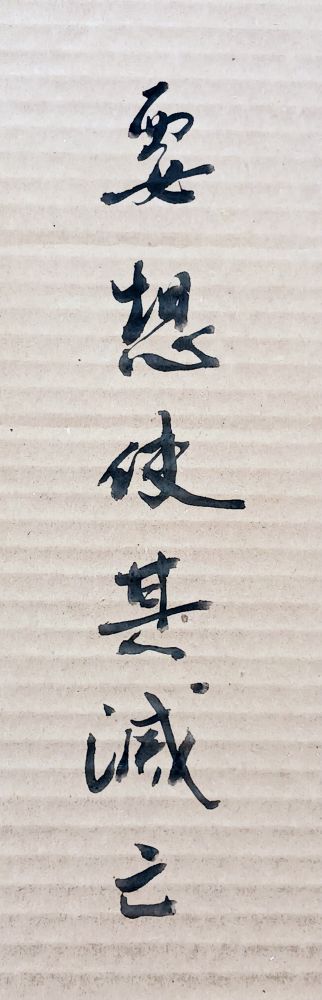 要想使其滅亡